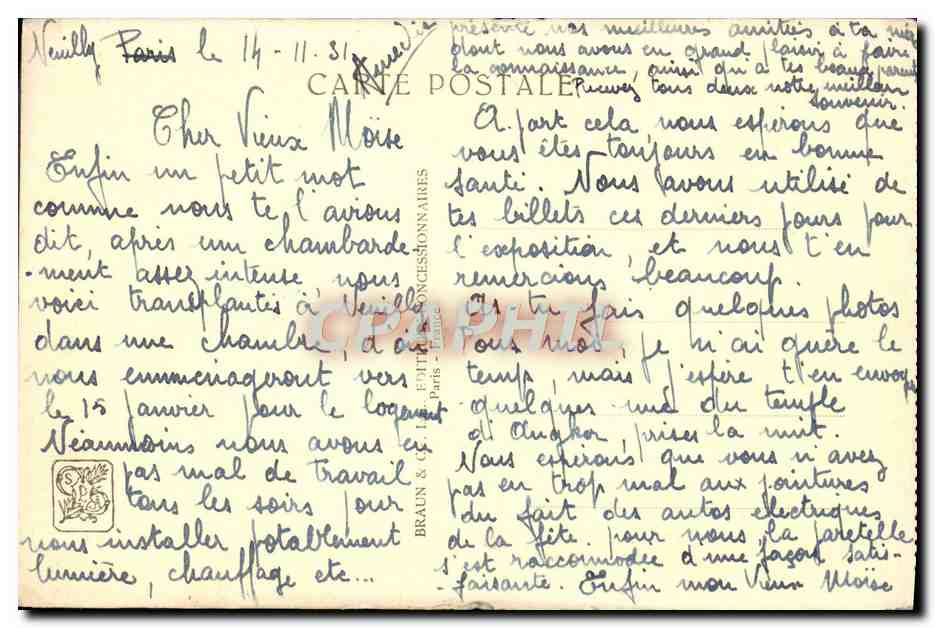 Neuilly Paris le 14-11-31
CARTE POSTALE
Cher Vieux Moïse
Enfin un petit mot
comme nous te l'avions
dit, après un chambarde-
-ment assez intense, nous
voici transplantés à Neuilly
dans une chambre, d'où
nous emménageront vers
le 15 janvier pour le logement
Néanmoins nous avons eu
pas mal de travail
tous les soirs pour
nous installer potablement
lumière, chauffage etc...
BRAUN & CIE ÉDITEURS CONCESSIONNAIRES
Paris - France
CPAPHIL
A part cela, nous espérons que
vous êtes toujours en bonne
santé. Nous avons utilisé de
tes billets ces derniers jours pour
l'exposition, et nous t'en
remercions beaucoup.
As tu fais quelques photos
Pour moi, je n'ai guère le
temps, mais j'espère t'en envoyer
quelques une du temple
d'Angkor, prises la nuit.
Nous espérons que vous n'avez
pas eu trop mal aux jointures
du fait des autos électriques
de la fête. pour nous, la
s'est raccommodée d'une façon satis-
-faisante. Enfin mon Vieux Moïse
présente nos meilleures amitiés à ta
dont nous avons eu grand plaisir à faire
la connaissance, ainsi qu'à tes beaux parents
Recevez tous deux notre meilleur
souvenir.